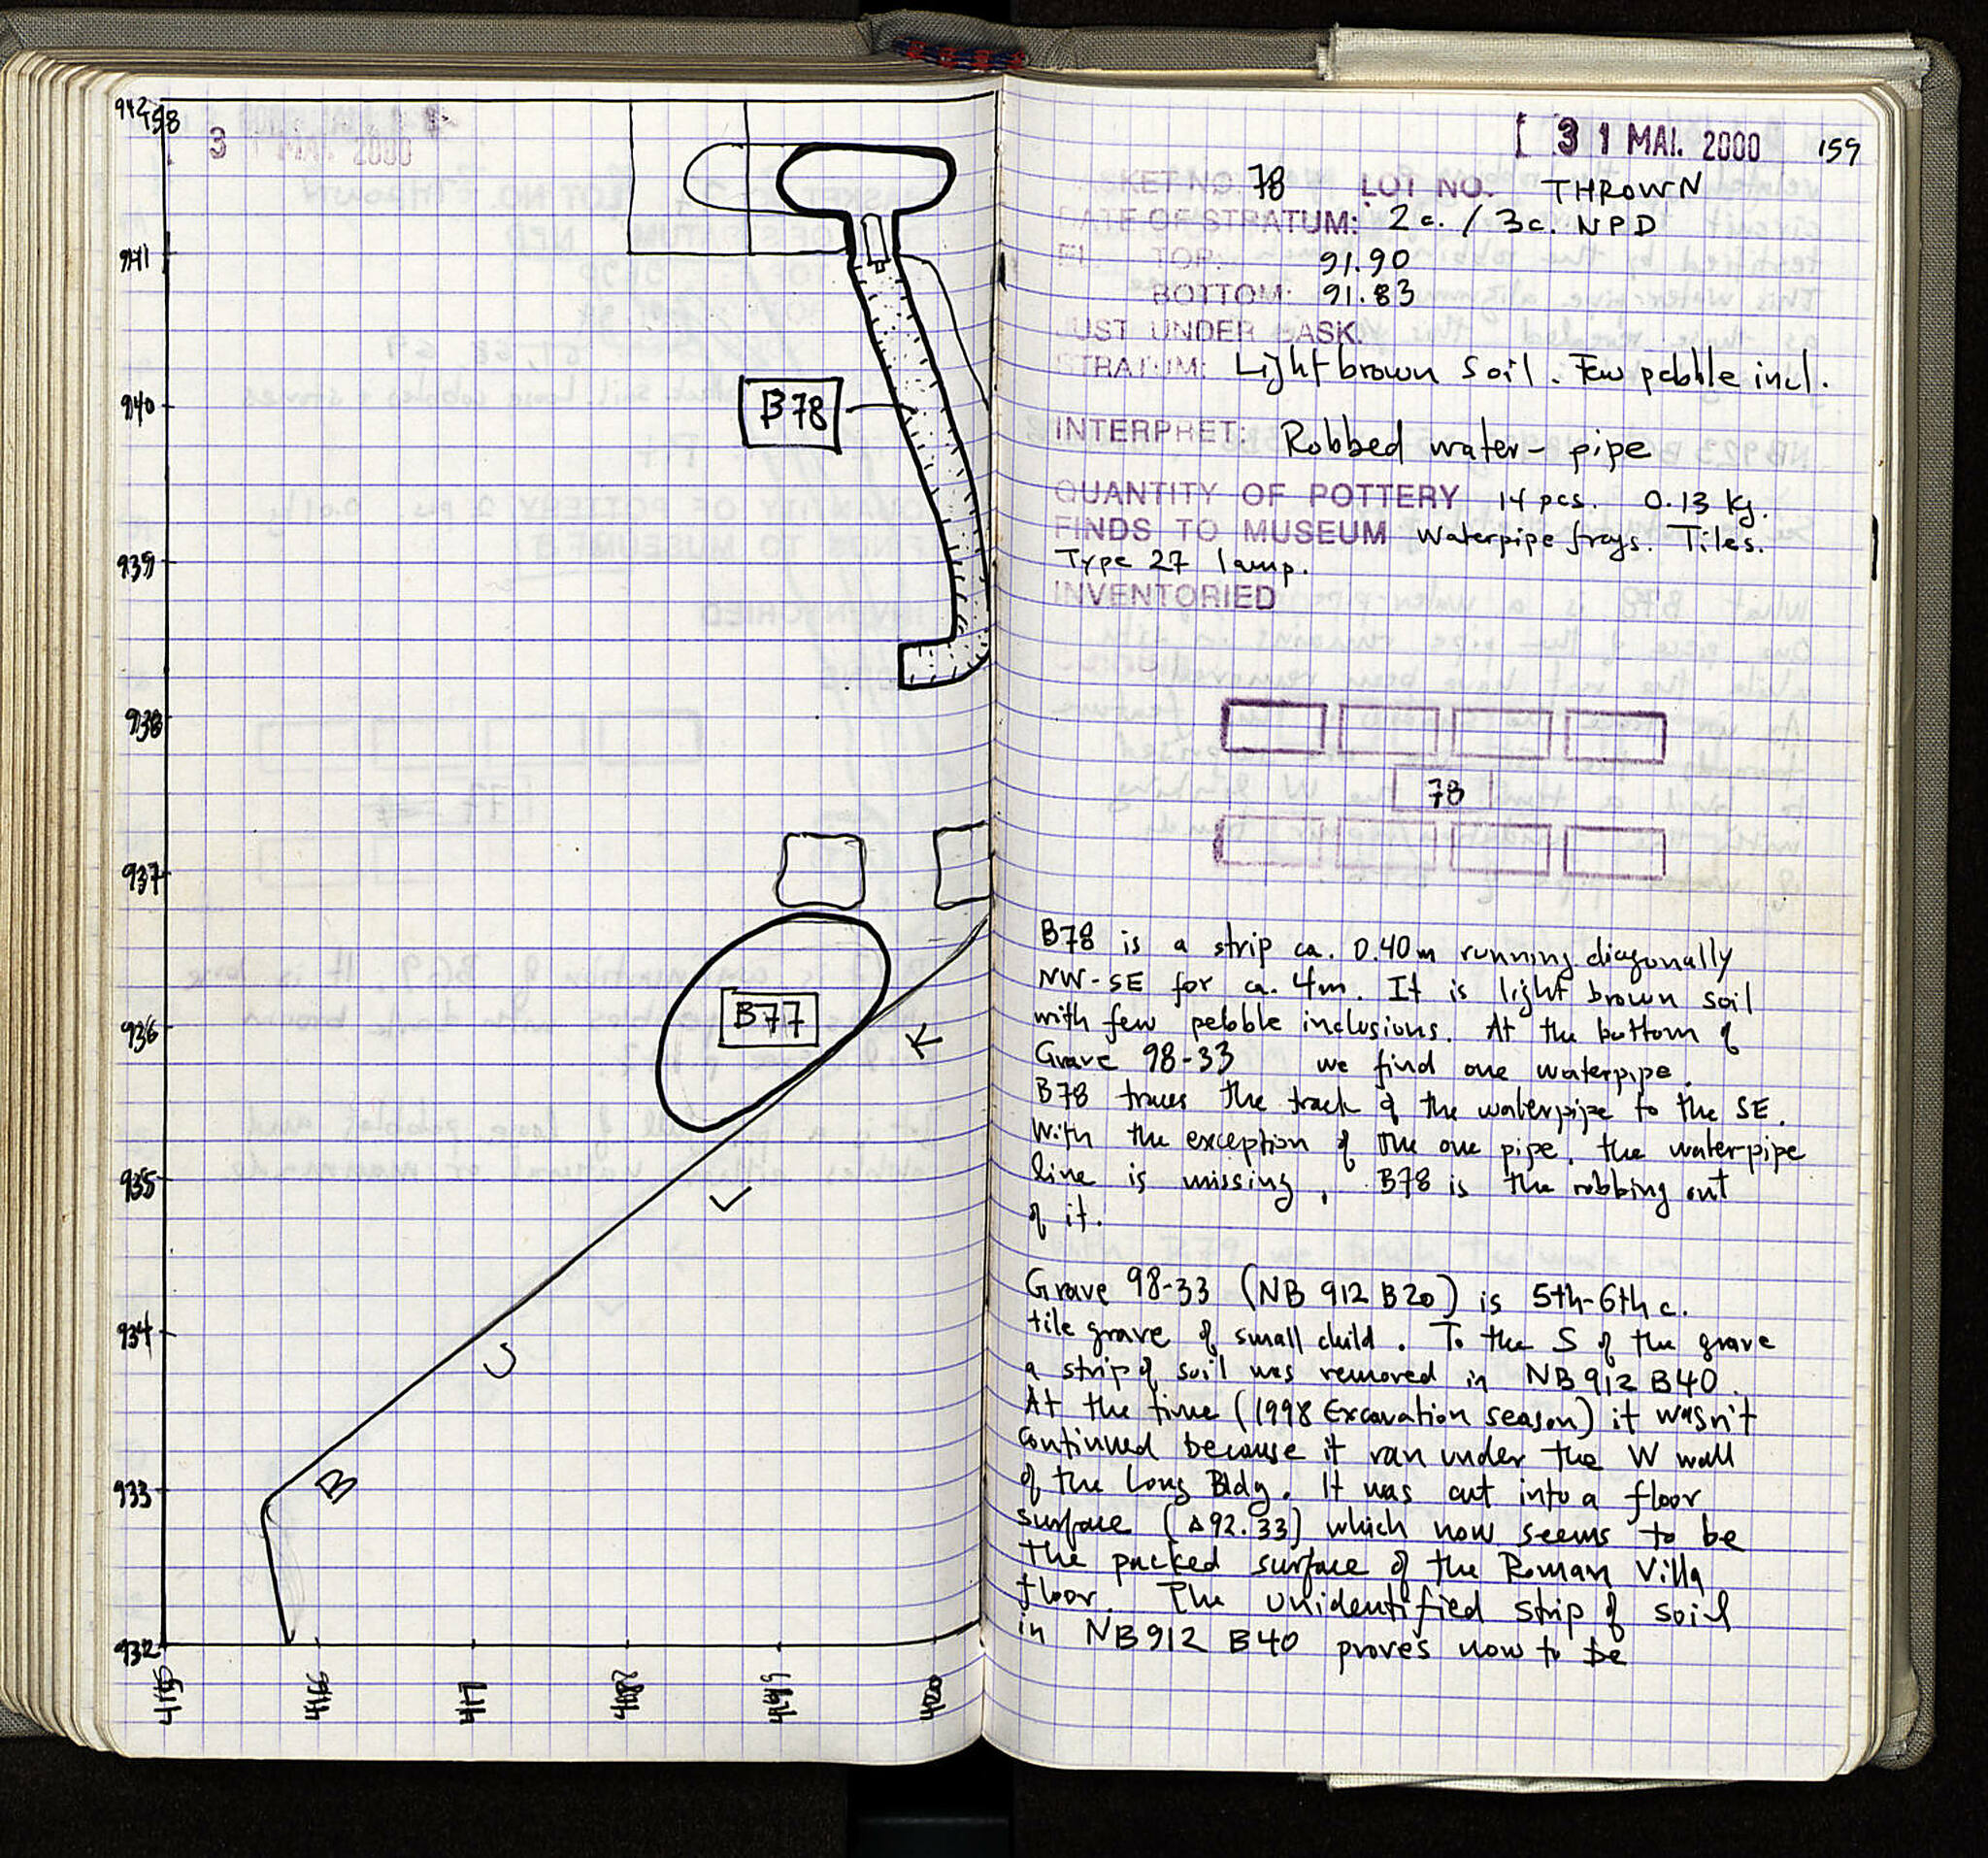 942
158
3 1 MAI. 2000
941
B78
940
939
938
937
B77
936
935
934
B
933
932
4415
4416
4417
4418
4419
4420
[ 3 1 MAI. 2000 159
KET NO. 78 LOT NO. THROWN
DATE OF STRATUM: 2c. / 3c. NPD
El. TOP: 91.90
BOTTOM: 91.83
JUST UNDER BASK.
STRATUM: Light brown soil. Few pebble incl.
INTERPRET: Robbed water-pipe
QUANTITY OF POTTERY 14 pcs. 0.13 kg.
FINDS TO MUSEUM Waterpipe frags. Tiles.
Type 27 lamp.
INVENTORIED
78
B78 is a strip ca. 0.40m running diagonally
NW-SE for ca. 4m. It is light brown soil
with few pebble inclusions. At the bottom of
Grave 98-33 we find one waterpipe.
B78 traces the track of the waterpipe to the SE.
With the exception of the one pipe, the waterpipe
line is missing. B78 is the robbing out
of it.
Grave 98-33 (NB 912 B20) is 5th-6th c.
tile grave of small child. To the S of the grave
a strip of soil was removed in NB 912 B40.
At the time (1998 Excavation season) it wasn't
continued because it ran under the W wall
of the Long Bldg. It was cut into a floor
surface (Δ92.33) which now seems to be
the packed surface of the Roman Villa
floor. The unidentified strip of soil
in NB912 B40 proves now to be